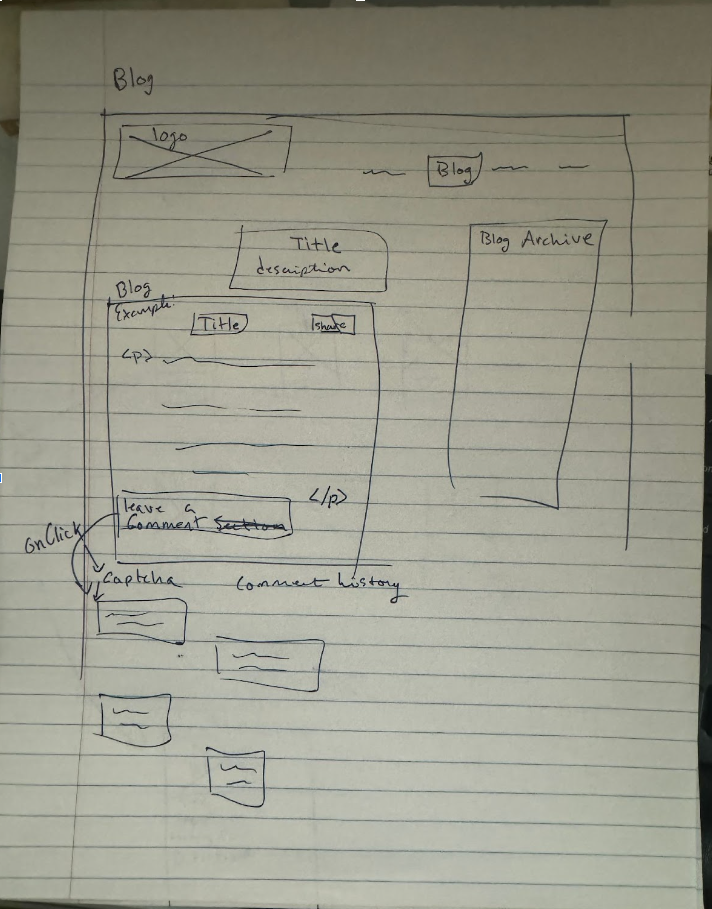 Blog
logo
Blog
Title
description
Blog Archive
Blog
Example:
Title
share
<p>
</p>
leave a
Comment section
onClick
Captcha
Comment history